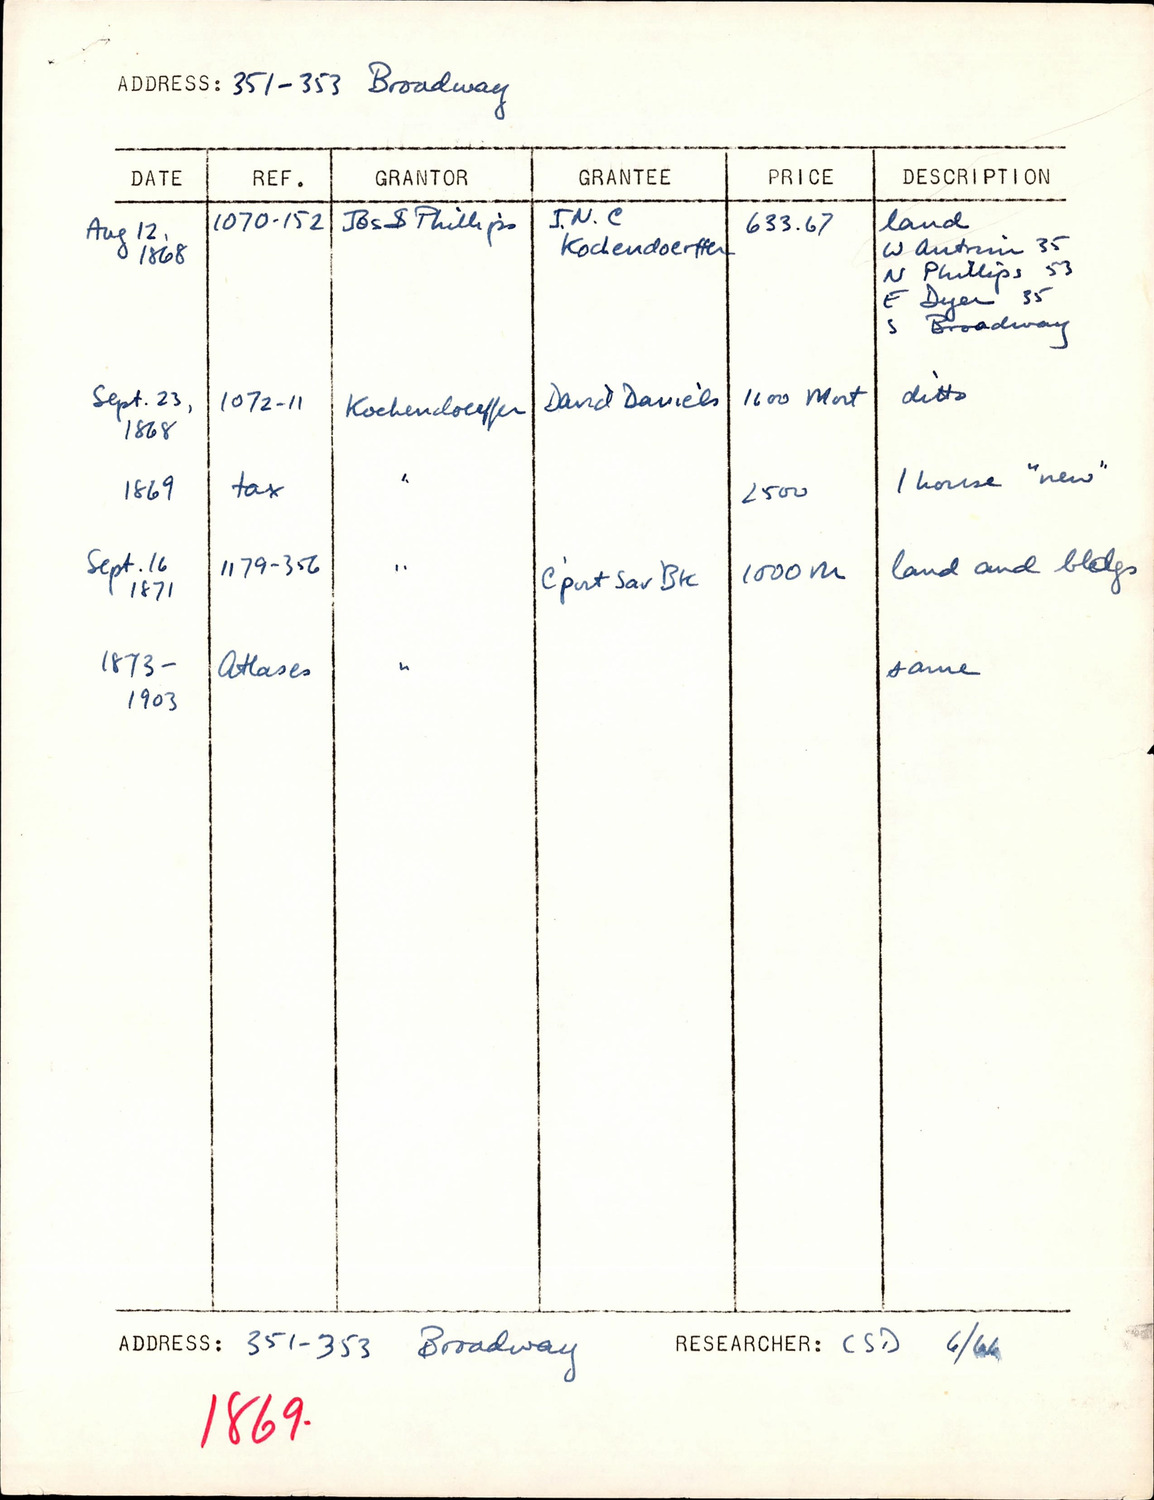 ADDRESS: 351-353 Broadway
DATE REF. GRANTOR GRANTEE PRICE DESCRIPTION
Aug 12, 1070-152 Jos S Phillips J.N.C 633.67 land
1868 Kochendoerffer W Antrim 35
N Phillips 53
E Dyer 35
S Broadway
Sept. 23, 1072-11 Kochendoerffer David Daniels 1600 Mort ditto
1868
1869 tax " 2500 1 house "new"
Sept. 16 1179-356 " C'port Sav Bk 1000 M land and bldgs
1871
1873- Atlases " same
1903
ADDRESS: 351-353 Broadway RESEARCHER: CSD 6/66
1869.